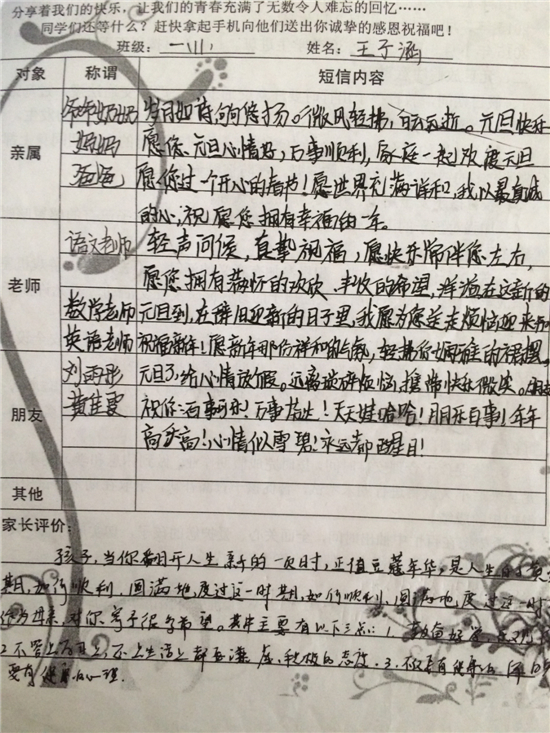 分享着我们的快乐，让我们的青春充满了无数令人难忘的回忆……
同学们还等什么？赶快拿起手机向他们送出你诚挚的感恩祝福吧！
班级： 姓名：王子涵
对象 称谓 短信内容
爷爷奶奶 岁月如诗，句句悠扬。微风轻拂，白云远逝。元旦快乐
亲属 妈妈 愿您元旦心情好，万事顺利，家庭一起欢度元旦
爸爸 愿您过一个开心的春节！愿世界充满祥和，我以最真诚
的心，祝愿您拥有幸福的一年。
语文老师 轻声问候，真挚祝福，愿快乐常伴您左右，
老师 愿您拥有满怀的欢欣、丰收的希望，洋溢在这新的
数学老师 元旦到，在辞旧迎新的日子里，我愿为您送走烦恼迎来
英语老师 祝福新年！愿新年那份祥和的气氛，轻拂您
刘雨彤 元旦了，给心情放假。远离琐碎烦恼，携带快乐微笑。
朋友 祝你：百事可乐！万事芬达！天天娃哈哈！月月乐百事！年年
高乐高！心情似雪碧！永远都醒目！
其他
家长评价：
孩子，当你翻开人生新的一页时，正值豆蔻年华，是人生的
期，如何顺利、圆满地度过这一时期，如何顺利、圆满地度过这一时
作为母亲，对你寄予很大希望。其中主要有以下三点：1.
2.不管上 生活上都要谦虚、积极的态度。3.
要有健康的心理。